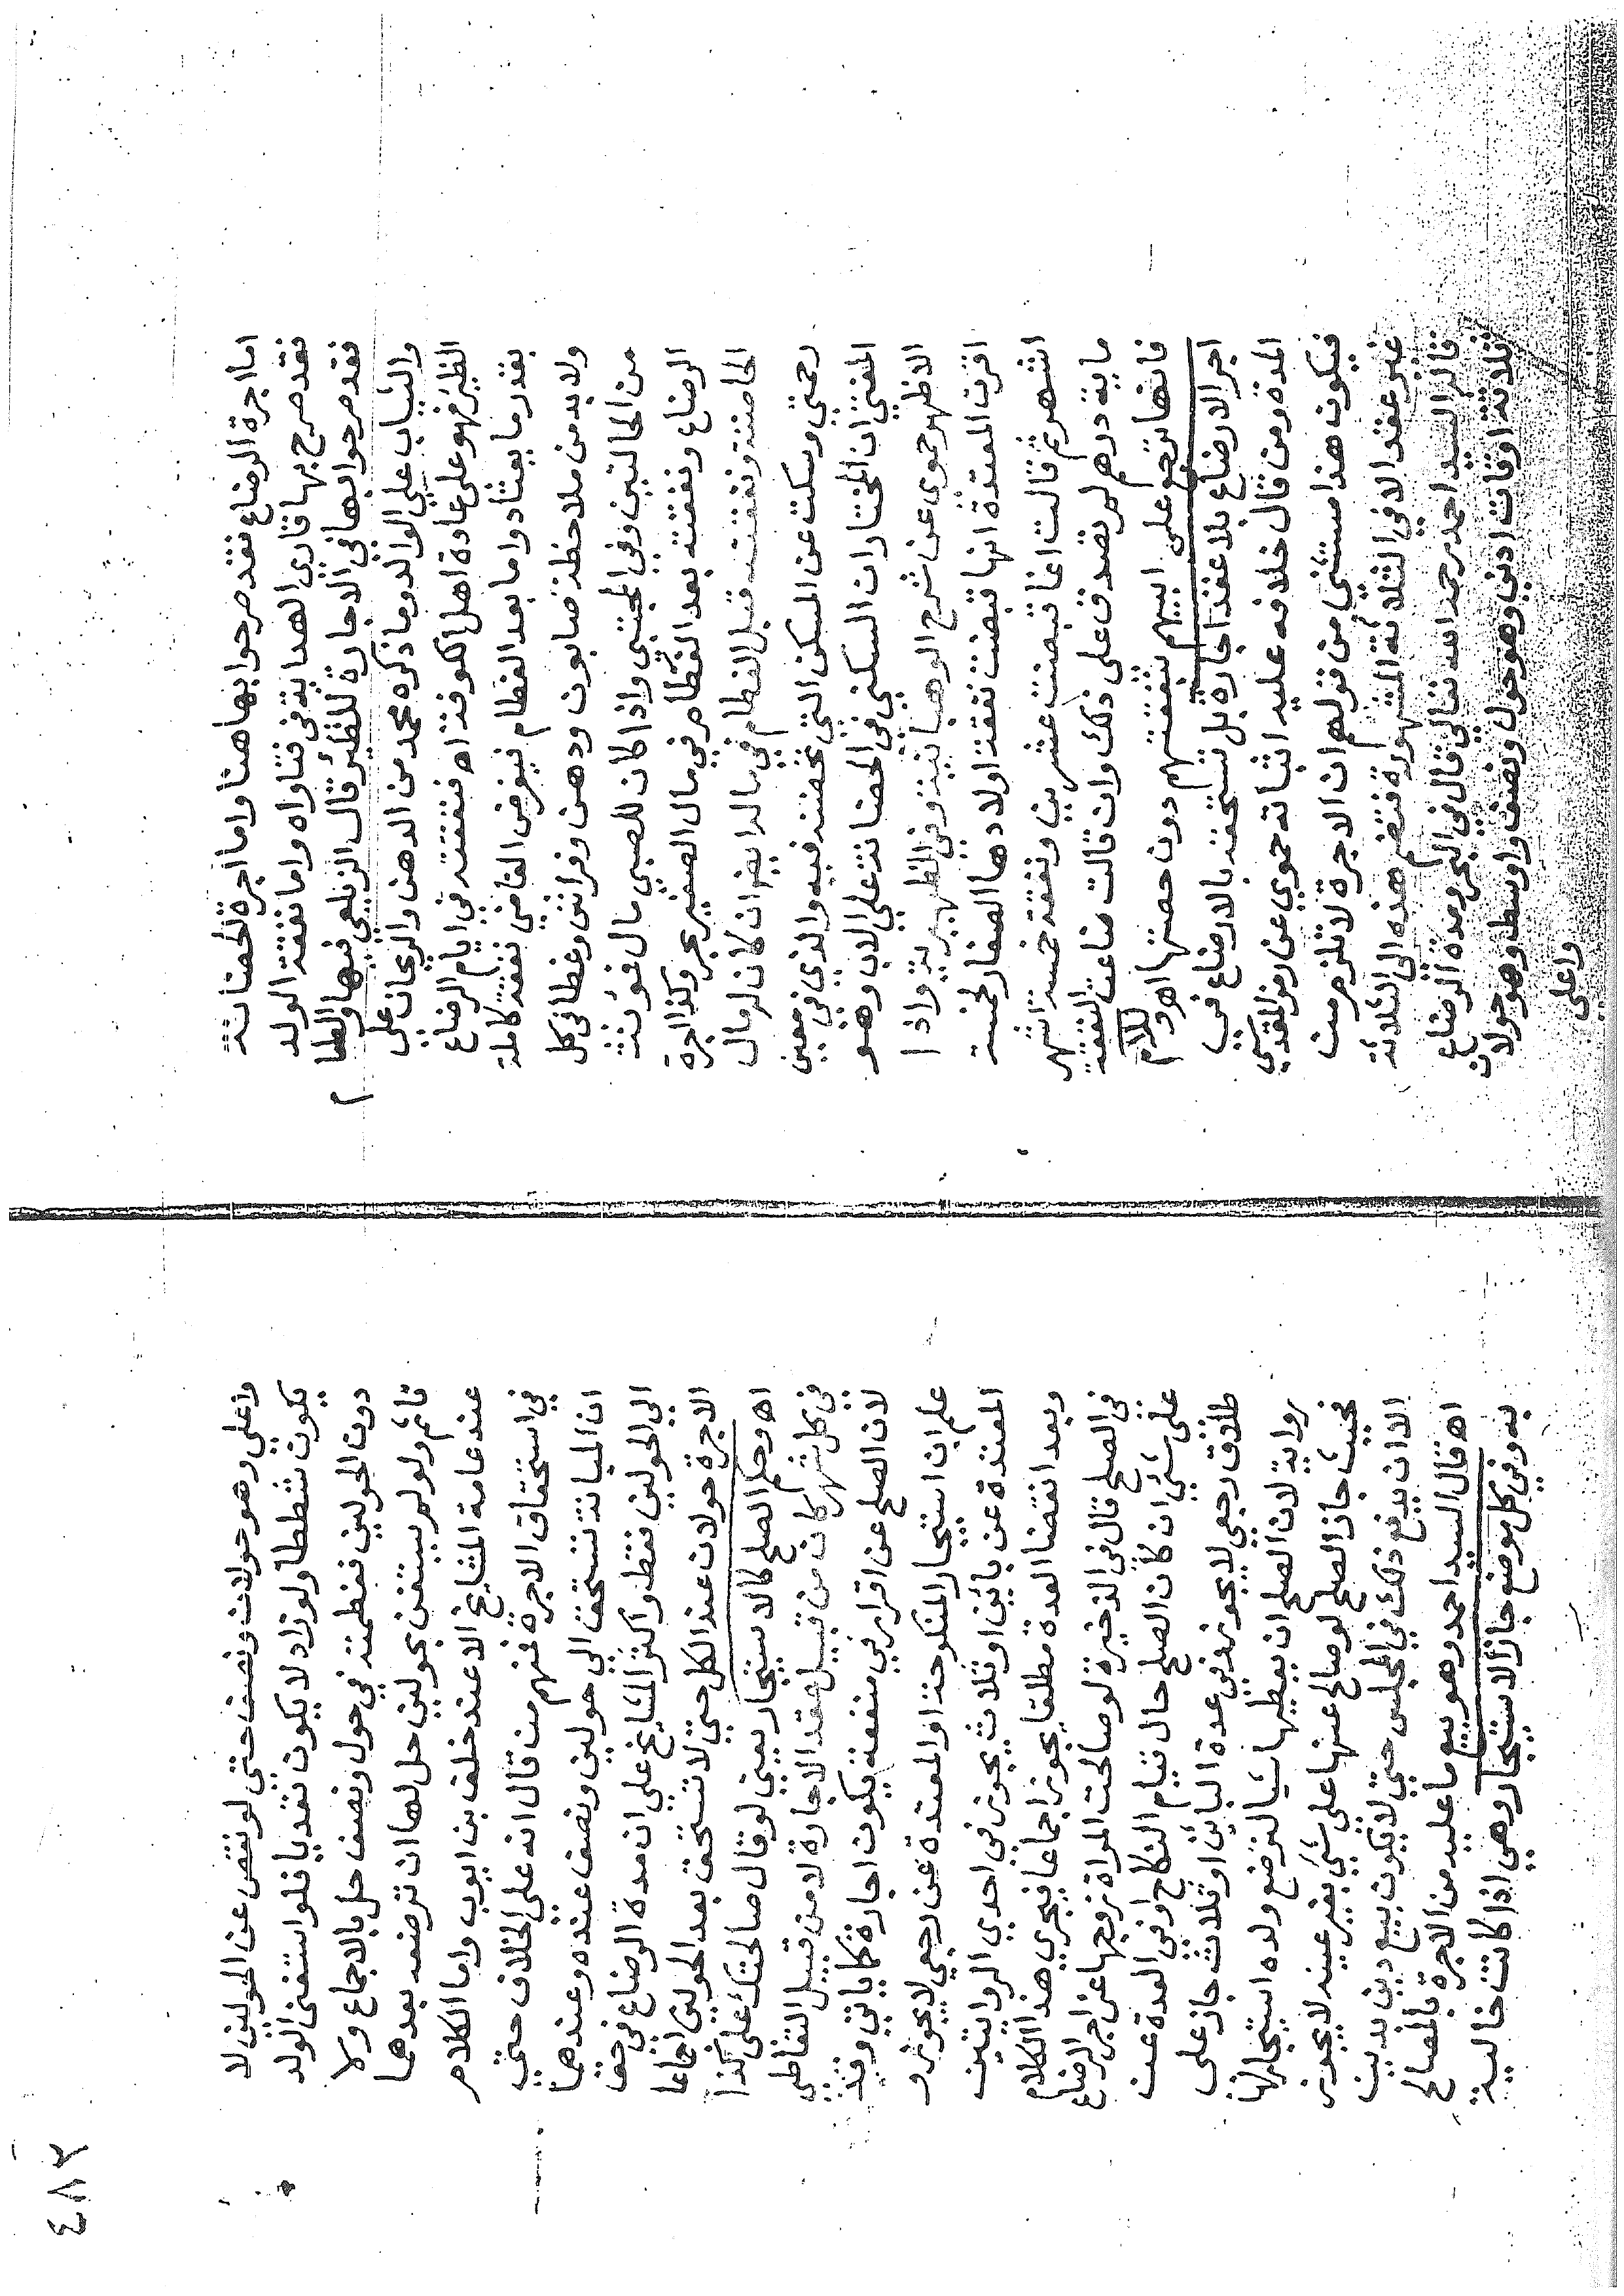 اما اجرة الرضاع فقد صرحوا بها هنا واما اجرة الحضانة
فقد صرح بها قاري الهداية في فتاواه واما نفقة الولد
فقد صرحوا بها في الاجارة للظئر قال الزيلعي فيها والطعام
والثياب على الوالد وما ذكره محمد من الدهن والريحان على
الظئر فهو على عادة اهل الكوفة اه فنفقته في ايام الرضاع
بقدر ما يعتاد واما بعد الفطام فيفرض القاضي نفقة كاملة
ولا بد من ملاحظة صابون ودهن وفراش وغطا في كل
من الحالتين وفي المجتبى واذا كان للصبي مال فمؤنة
الرضاع ونفقته بعد الفطام في مال الصغير بحر وكذا اجرة
الحاضنة ونفقته قبل الفطام في ماله ايضا ان كان له مال
رحمتي وسكت عن المسكن التي تحضنه فيه والذي في معين
المفتي ان المختار ان السكني في الحضانة على الاب وهو
الاظهر حموي عن شرح الوهبانية وفي الظهيرية واذا
اقرت المعتدة انها قبضت نفقة اولادها الصغار لخمسة
اشهر ثم قالت انما قبضت عشرين ونفقة خمسة اشهر
ماية درهم لم تصدق على ذلك وان قالت ضاعت النفقة
فانها ترجع على ابيهم بنفقتهم دون حصتها اه وللام
اجر الارضاع بلا عقد اجارة بل تستحقه بالارضاع في
المدة ومن قال خلافه عليه اثباته حموي عن رمز المقدسي
فيكون هذا مستثنى من قولهم ان الاجرة لا تلزم من
غير عقد الا في الثلاثة المشهورة فتضم هذه الى الثلاثة
قاله السيد احمد رحمه الله تعالى قال في البحر ومدة الرضاع
ثلاثة اوقات ادني وهو حول ونصف واوسط وهو حولان
واعلى
واعلى وهو حولان ونصف حتى لو نقص عن الحولين لا
يكون شططا ولو زاد لا يكون تعديا فلو استغنى الولد
دون الحولين ففطمته في حول ونصف حل بالاجماع ولا
تاثم ولو لم يستغن بحولين حل لها ان ترضعه بعدهما
عند عامة المشايخ الا عند خلف بن ايوب واما الكلام
في استحقاق الاجرة فمنهم من قال انه على الخلاف حتى
ان المبانة تستحق الى حولين ونصف عنده وعندهما
الى الحولين فقط واكثر المشايخ على ان مدة الرضاع في حق
الاجرة حولان عند الكل حتى لا تستحق بعد الحولين اجماعا
اه وحكم الصلح كالاستيجار يعني لو قال صالحتك على كذا
في كل شهر كان من قبيل عقد الاجارة لا من قبيل التعاطي
لان الصلح عن اقرار في منفعة يكون اجارة كما ياتي وقد
علم ان استيجار المنكوحة او المعتدة عن رجعي لا يجوز و
المعتدة عن بائن او ثلاث يجوز في احدي الروايتين
وبعد انقضا العدة مطلقا يجوز اجماعا فيجري هذا الكلام
في الصلح قال في الذخيرة لو صالحت المراة زوجها عن اجر الرضاع
على شئ ان كان الصلح حال قيام النكاح او في العدة عن
طلاق رجعي لا يجوز وفي عدة البائن او ثلاث جاز على
رواية لان الصلح ان يعطيها شيا لترضع ولده استيجار لها
بحيث جاز الصلح لو صالح عنها على شئ بغير عينه لا يجوز
الا ان يدفع ذلك في المجلس حتى لا يكون بيع دين بدين
اه قال السيد احمد وهو بيع ما عليه من الاجرة بالمصالح
به وفي كل موضع جاز الاستيجار وهي اذا كانت خالية
٤٨٣